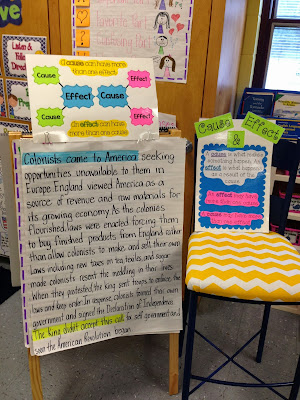 Listen &
Follow
Directions
favorite Part
A cause can have more
than one effect!
Cause
Effect
Effect
Cause
Cause
Effect
An effect can have
more than one cause.
Colonists came to America seeking
opportunities unavailable to them in
Europe. England viewed America as a
source of revenue and raw materials for
its growing economy. As the colonies
flourished, laws were enacted forcing them
to buy finished products from England rather
than allow colonists to make and sell their own.
Laws including new taxes on tea, foolas and sugar
made colonists resent the meddling in their lives.
When they protested, the king sent troops to enforce the
laws and keep order. In response, colonists formed their own
government and signed the Declaration of Independence.
The King didn't accept this call for self government and
soon the American Revolution began.
Cause
&
Effect
A cause is what makes
something happen. An
effect is what happens
as a result of the
cause.
An effect may have
more than one cause.